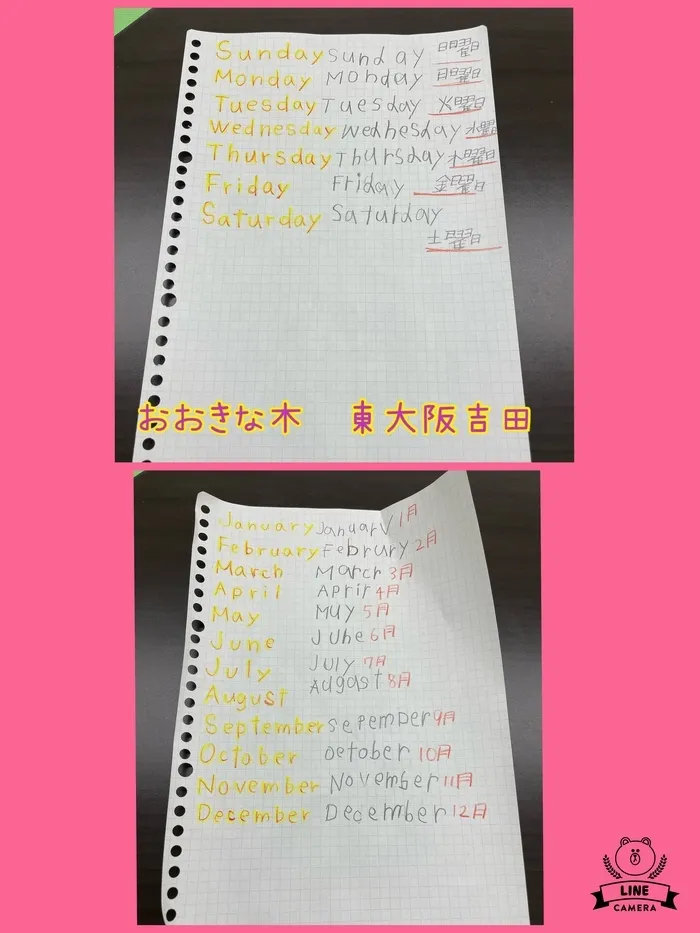 Sunday sunday 日曜日
Monday Monday 月曜日
Tuesday Tuesday 火曜日
Wednesday Wednesday 水曜日
Thursday Thursday 木曜日
Friday Friday 金曜日
Saturday Saturday
土曜日
おおきな木 東大阪吉田
January January 1月
February Februry 2月
March March 3月
April Aprir 4月
May Muy 5月
June June 6月
July July 7月
August August 8月
September sepember 9月
October october 10月
November November 11月
December December 12月
LINE
CAMERA